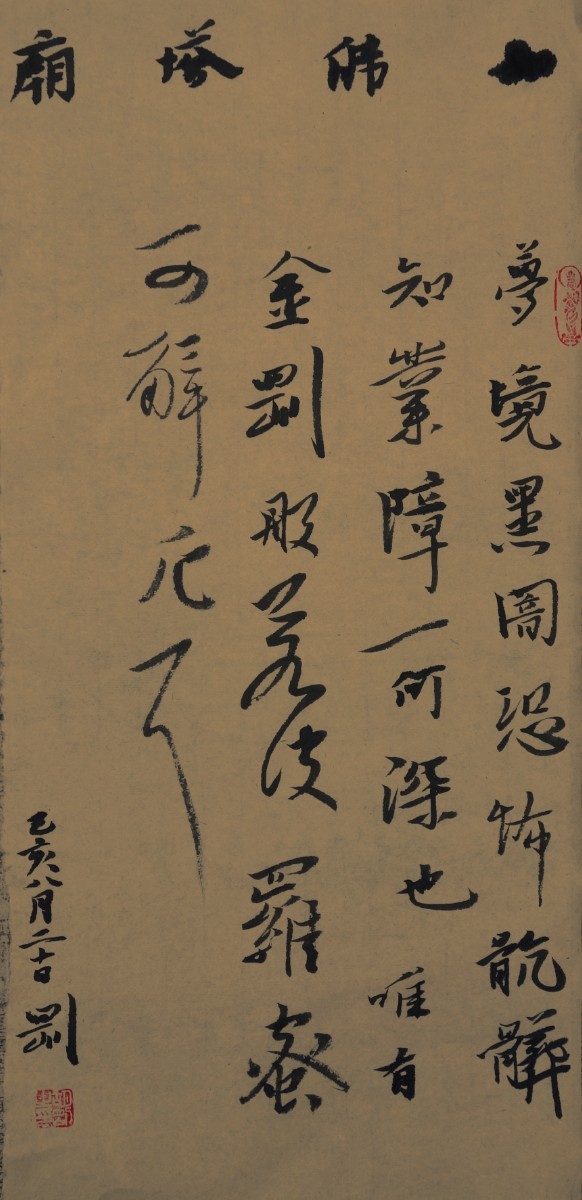 如佛塔廟
夢境黑闇恐怖骯髒
知業障一何深也唯有
金剛般若波羅蜜
可解厄了
己亥八月二十日剛